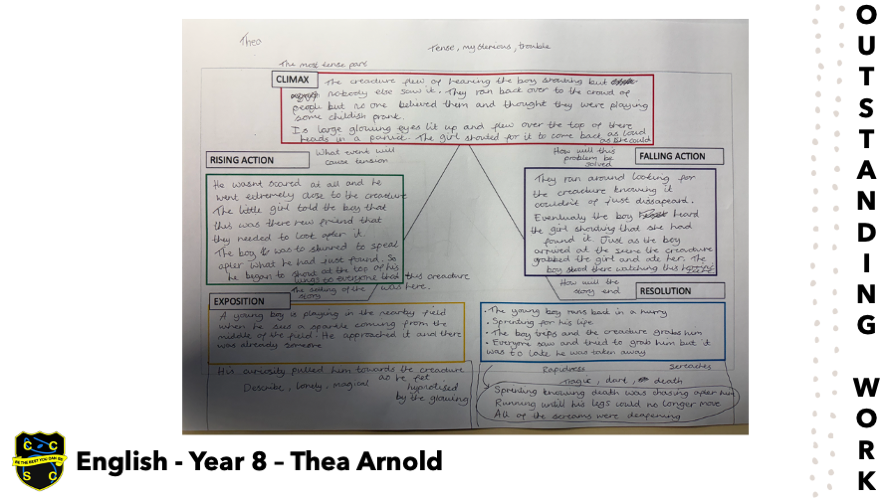 Thea
Tense, mysterious, trouble
The most tense part
CLIMAX
The creature flew of hearing the boy shouting but
nobody else saw it. They ran back over to the crowd of
people but no one believed them and thought they were playing
some childish prank.
Is large glowing eyes lit up and flew over the top of there
heads in a panice. The girl shouted for it to come back as loud
as she could
RISING ACTION
What event will
cause tension
He wasnt scared at all and he
went extremely close to the creature
The little girl told the boy that
this was there new friend that
they needed to look after it.
The boy was to stunned to speak
after what he had just found. So
he began to shout at the top of his
lungs to everyone that this creature
was here.
How will this
problem be
solved
FALLING ACTION
They ran around looking for
the creature knowing it
couldn't of just dissapeard.
Eventualy the boy heard
the girl shouting that she had
found it. Just as the boy
arrived at the scene the creature
grabbed the girl and ate her. The
boy stood there watching this
The setting of the
story
EXPOSITION
A young boy is playing in the nearby field
when he sees a sparkle coming from the
middle of the field. He approached it and there
was already someone
His curiosity pulled him towards the creature
as he felt
hypnotised
by the glowing
Describe, lonely, magical
How will the
story end
RESOLUTION
• The young boy runs back in a hurry
• Sprinting for his life
• The boy trips and the creature grabs him
• Everyone saw and tried to grab him but it
was to late he was taken away
Rapidness
screaches
tragic, dart, death
Sprinting knowing death was chasing after him
Running until his legs could no longer move
All of the screams were deafening
C C
BE THE BEST YOU CAN BE
S C
English - Year 8 – Thea Arnold
OUTSTANDING WORK